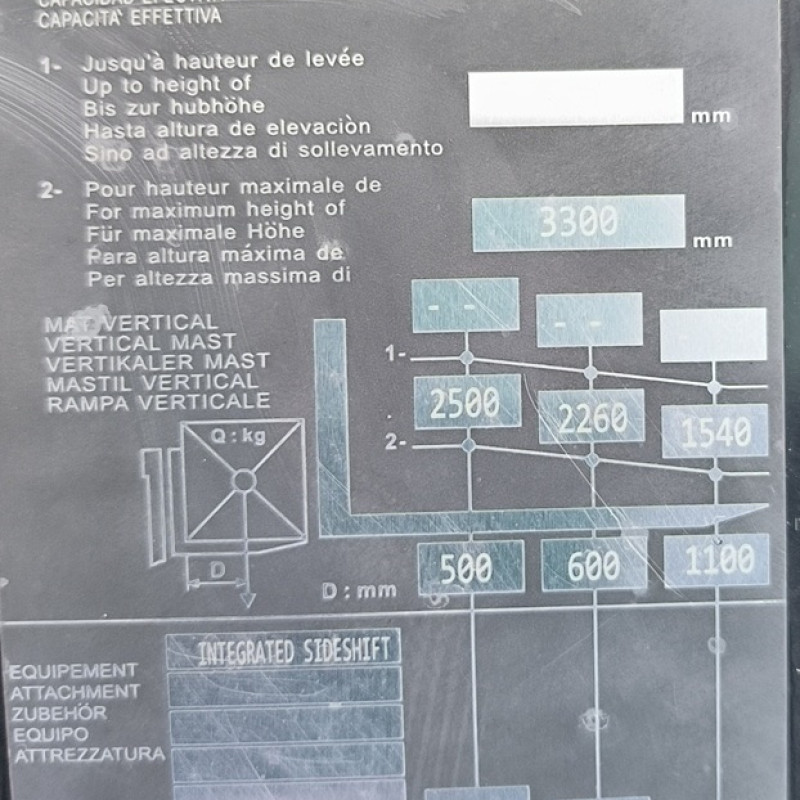 CAPACITA' EFFETTIVA
1- Jusqu'à hauteur de levée
Up to height of
Bis zur hubhöhe
Hasta altura de elevaciòn
Sino ad altezza di sollevamento
mm
2- Pour hauteur maximale de
For maximum height of
Für maximale Höhe
Para altura máxima de
Per altezza massima di
3300 mm
MAT VERTICAL
VERTICAL MAST
VERTIKALER MAST
MASTIL VERTICAL
RAMPA VERTICALE
- - - -
1-
2500 2260 1540
2-
Q : kg
D
D : mm
500 600 1100
INTEGRATED SIDESHIFT
EQUIPEMENT
ATTACHMENT
ZUBEHÓR
EQUIPO
ATTREZZATURA